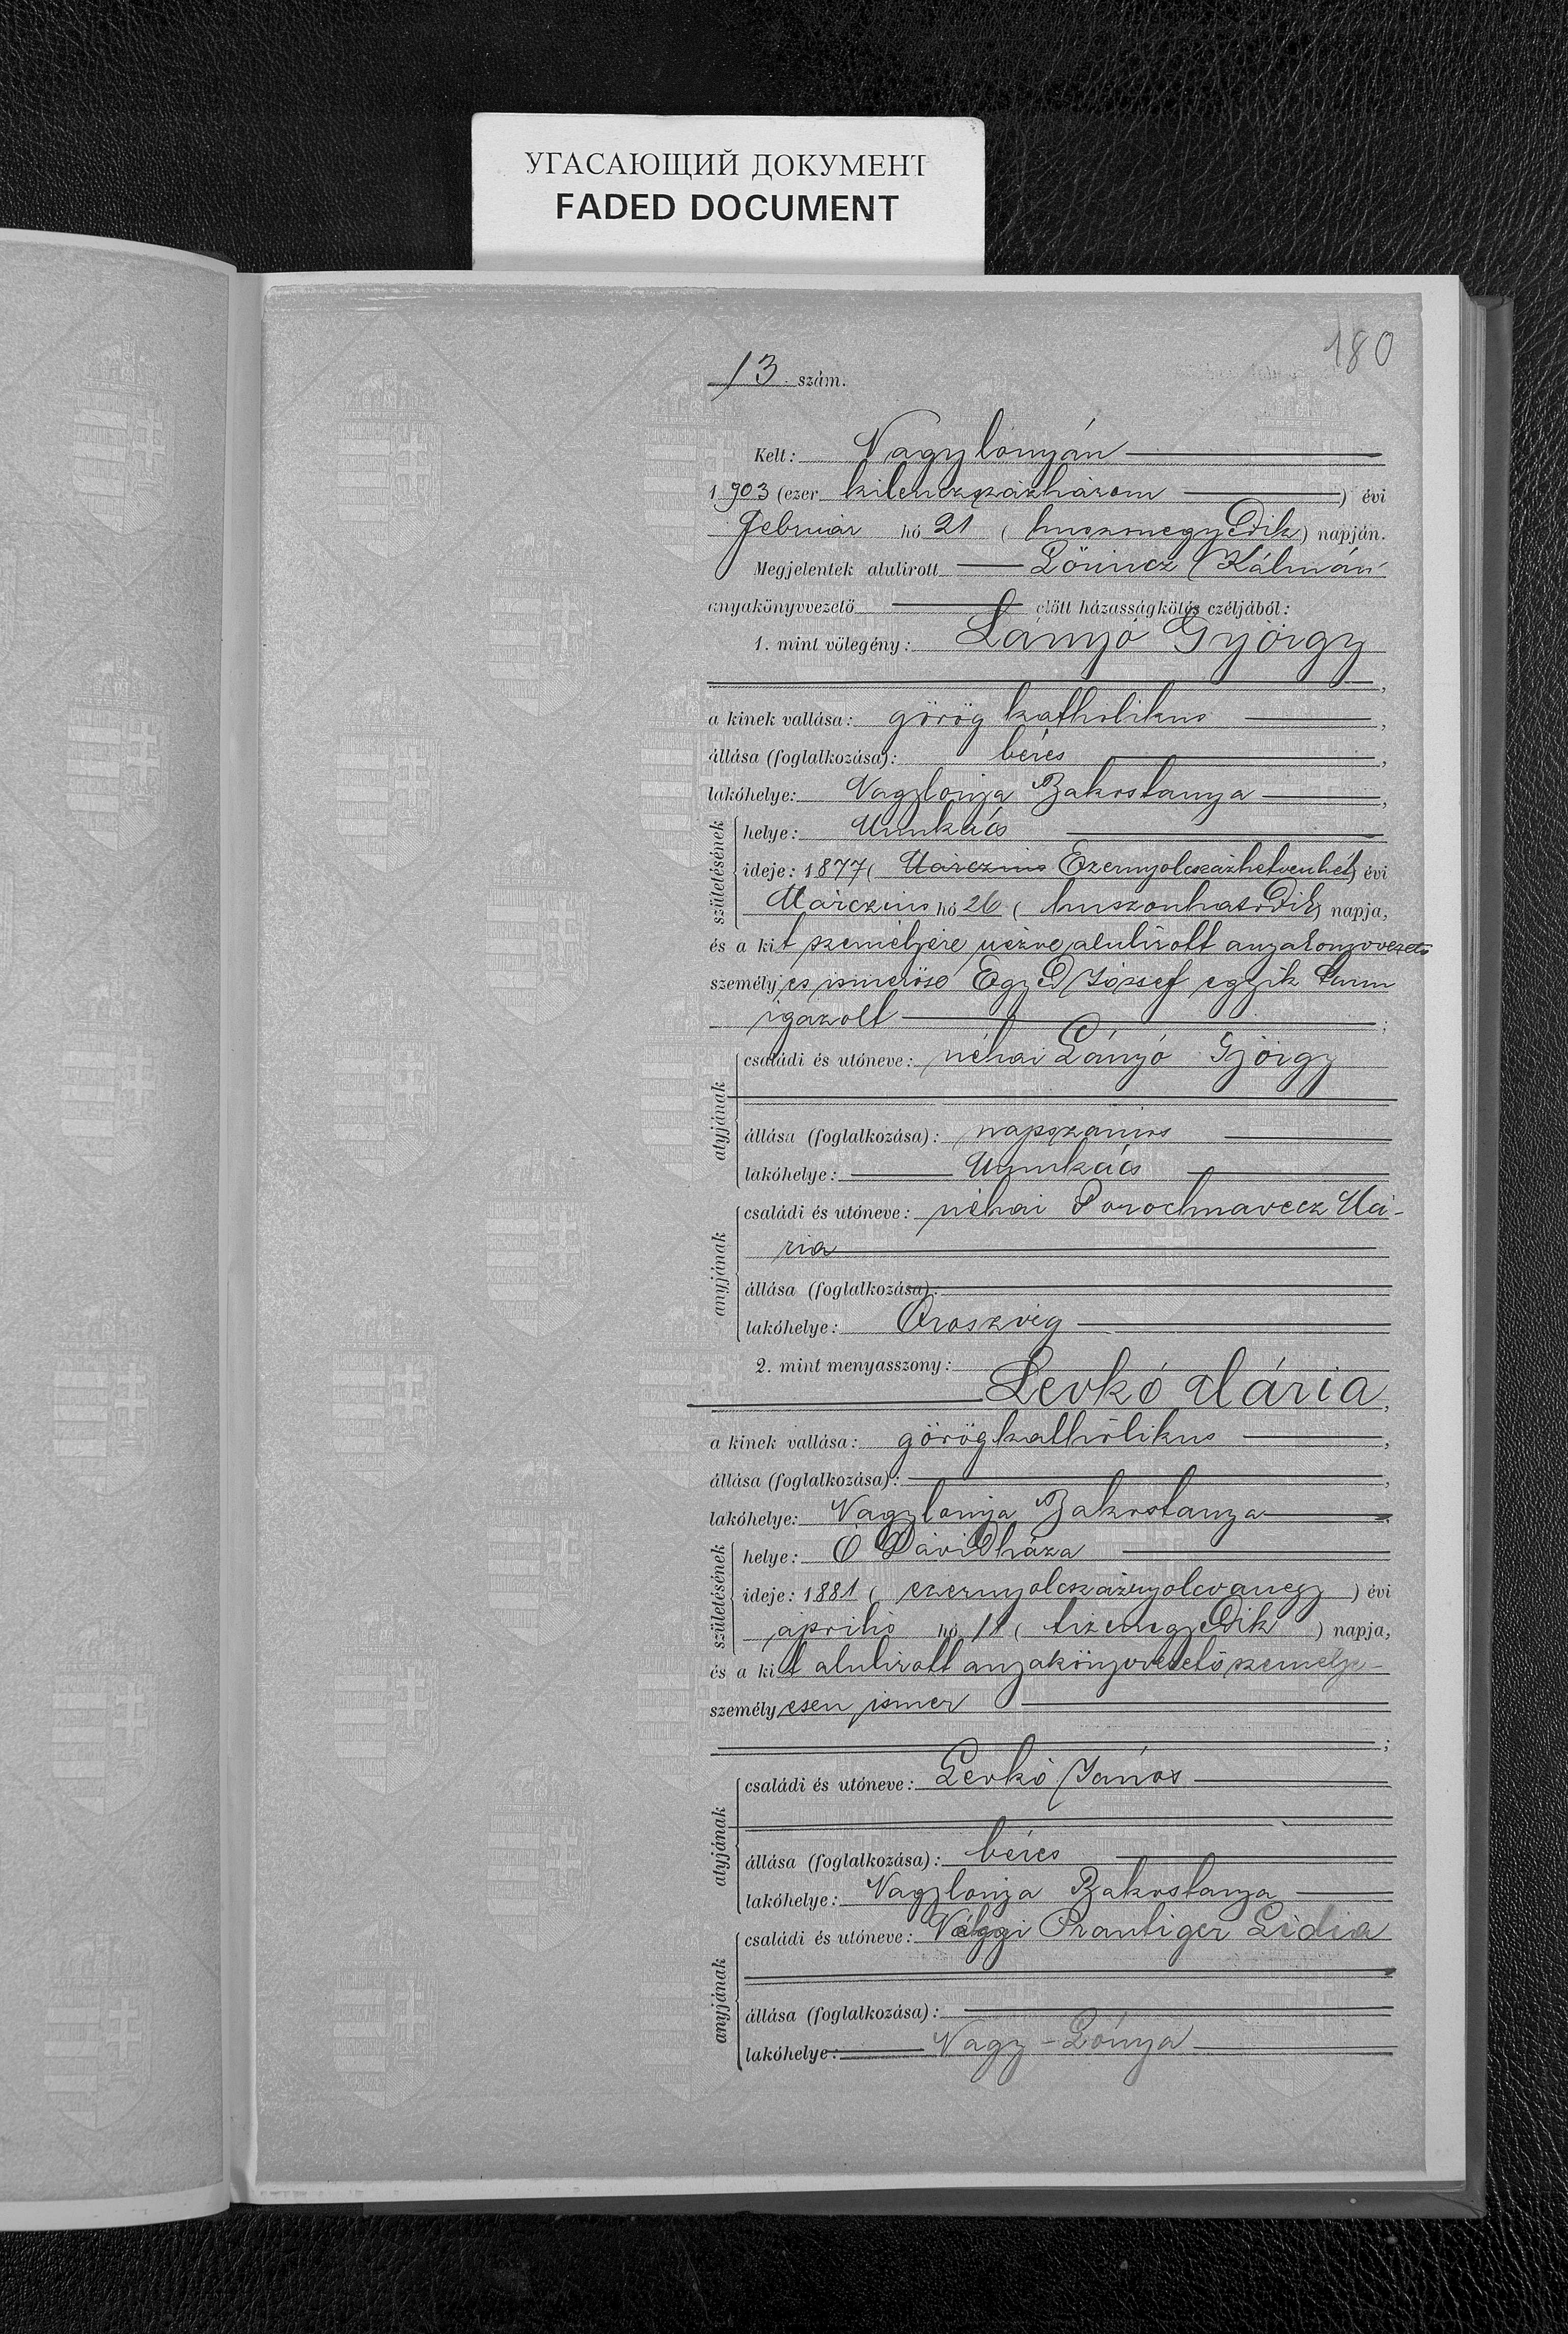 УГАСАЮЩИЙ ДОКУМЕНТ
FADED DOCUMENT
180
13. szám.
Kelt: Nagylónyán
1903 (ezer kilenczszázhárom) évi
Február hó 21 (huszonegyedik) napján.
Megjelentek alulirott Lőrincz Kálmán
anyakönyvvezető előtt házasságkötés czéljából:
1. mint vőlegény: Lányó György
a kinek vallása: görög katholikus,
állása (foglalkozása): béres,
lakóhelye: Nagylónya Bakostanya,
születésének
helye: Munkács
ideje: 1877 (Márczius Ezernyolcszázhetvenhét) évi
Márczius hó 26 (huszonhatodik) napja,
és a kit személyére nézve alulirott anyakönyvvezető
személyes ismerőse Egyed József egyik tanu
igazolt;
atyjának
családi és utóneve: néhai Lányó György
állása (foglalkozása): napszámos
lakóhelye: Munkács
anyjának
családi és utóneve: néhai Porochnavecz Má-
ria
állása (foglalkozása):
lakóhelye: Oroszvég
2. mint menyasszony:
Levkó Mária,
a kinek vallása: görögkatholikus,
állása (foglalkozása):,
lakóhelye: Nagylónya Bakostanya
születésének
helye: Ó Dávidháza
ideje: 1881 (ezernyolcszáznyolcvanegy) évi
április hó 11 (tizenegyedik) napja,
és a kit alulirott anyakönyvvezető személye-
személyesen ismer
;
atyjának
családi és utóneve: Levkó János
állása (foglalkozása): béres
lakóhelye: Nagylónya Bakostanya
anyjának
családi és utóneve: Prantiger Lidia
állása (foglalkozása):
lakóhelye: Nagy-Lónya